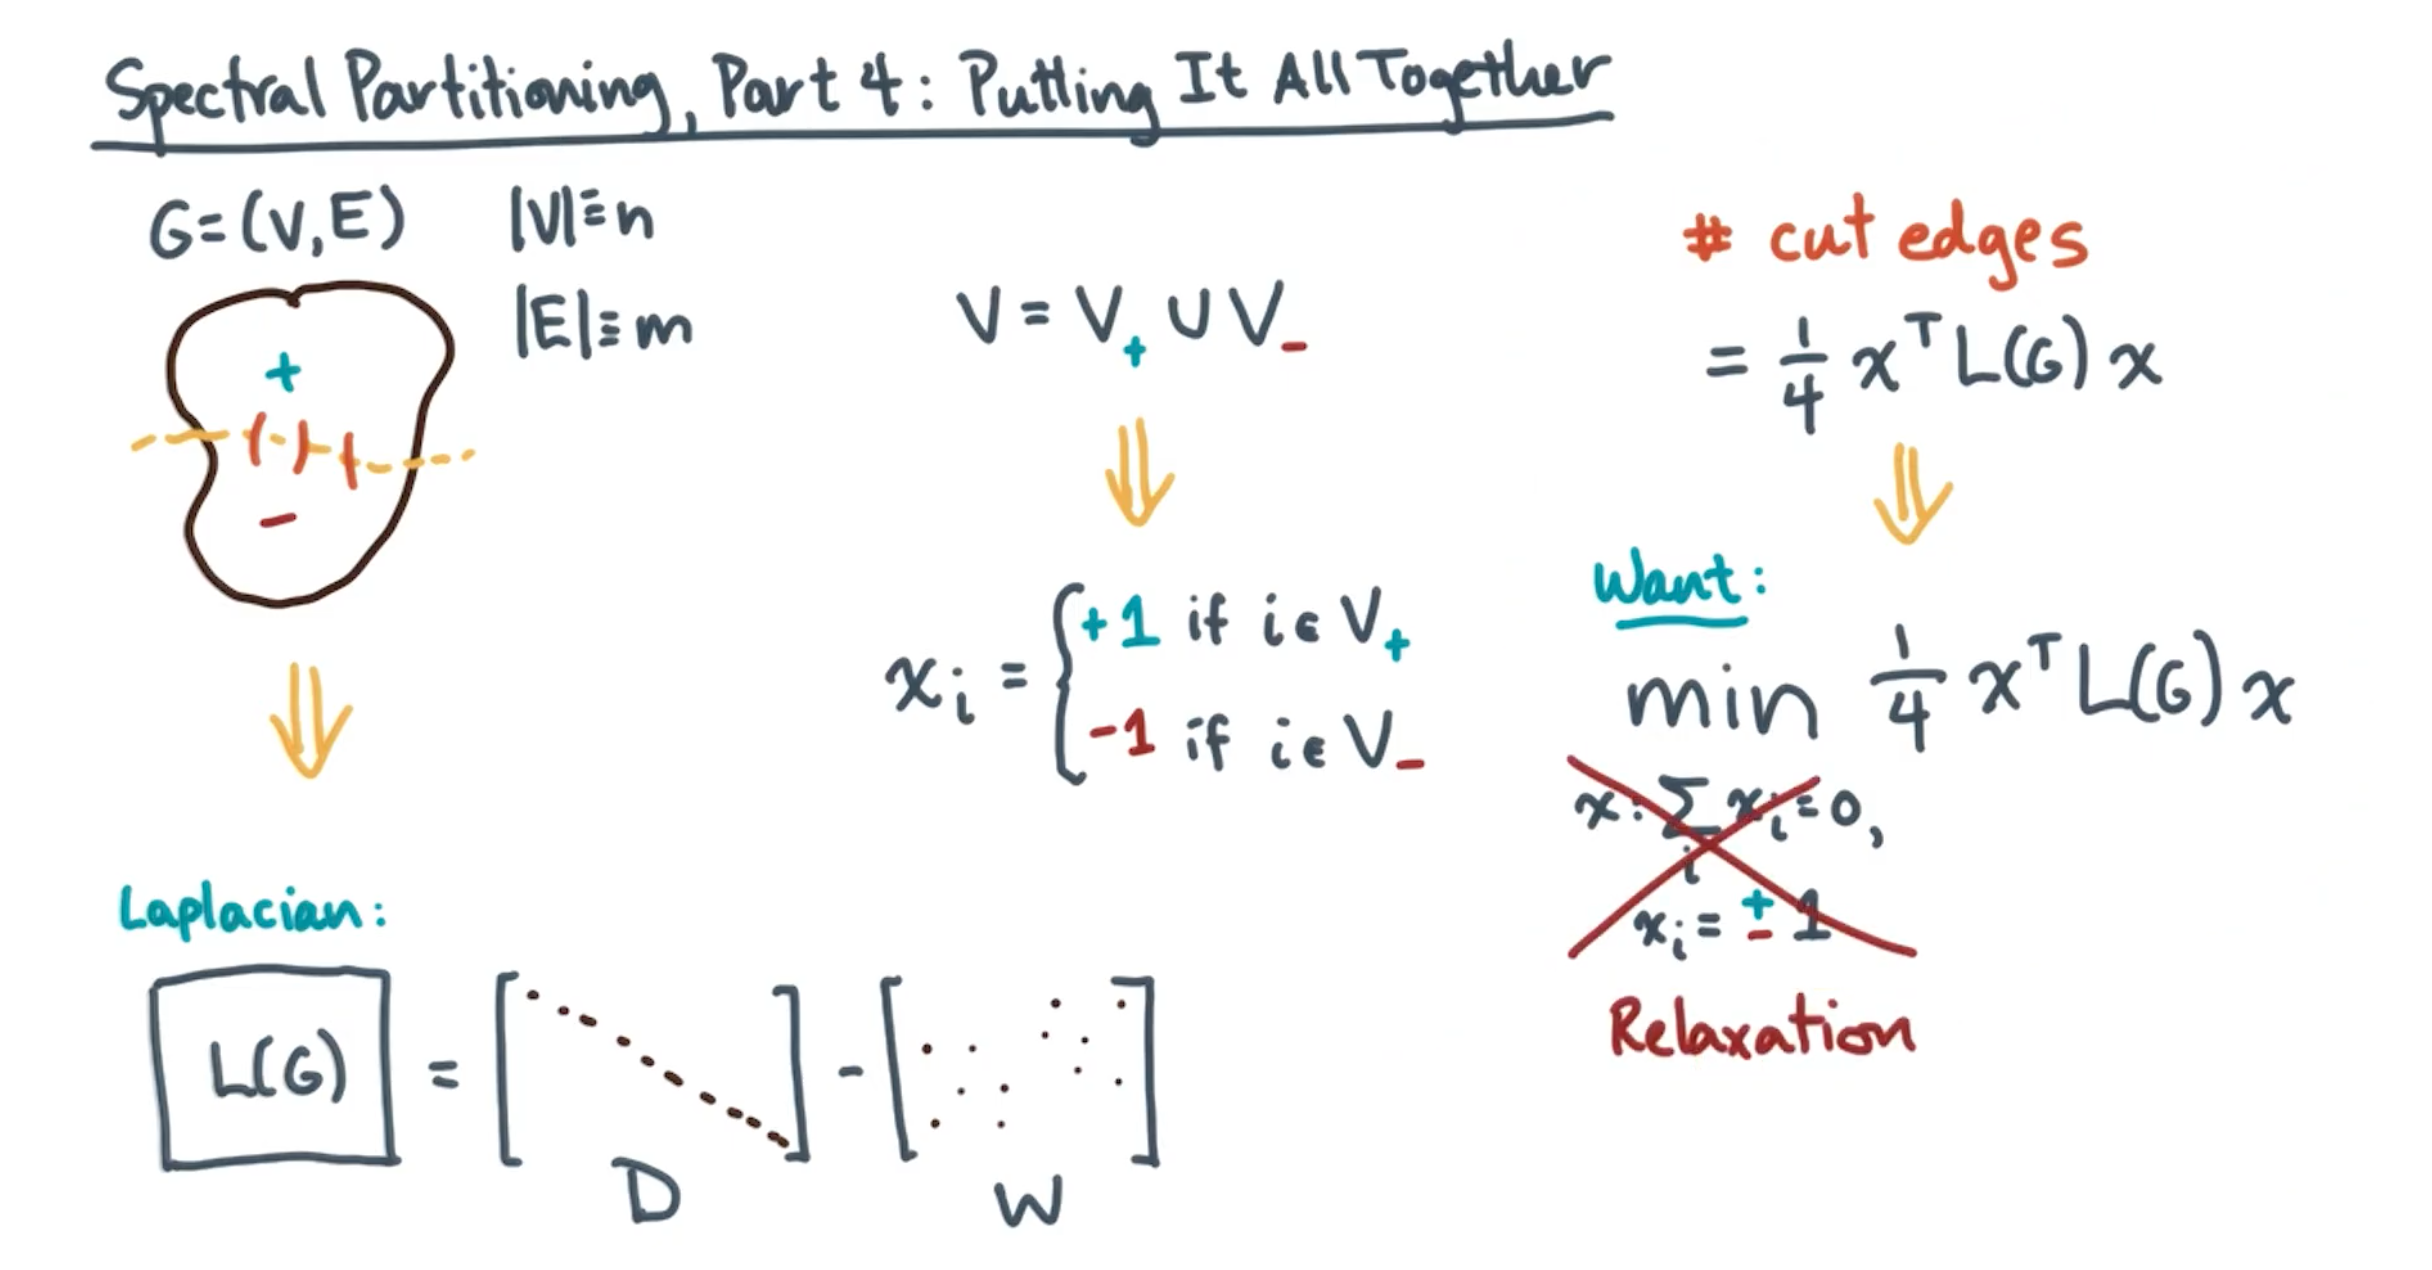 Spectral Partitioning, Part 4: Putting It All Together
G=(V,E)
|V|≡n
|E|≡m
+
-
Laplacian:
L(G) = [ ] - [ ]
D
W
V = V₊ ∪ V₋
xᵢ = { +1 if i ∈ V₊
-1 if i ∈ V₋
# cut edges
= 1/4 xᵀL(G) x
Want:
min 1/4 xᵀL(G) x
x: ∑ᵢ xᵢ=0,
xᵢ= ± 1
Relaxation